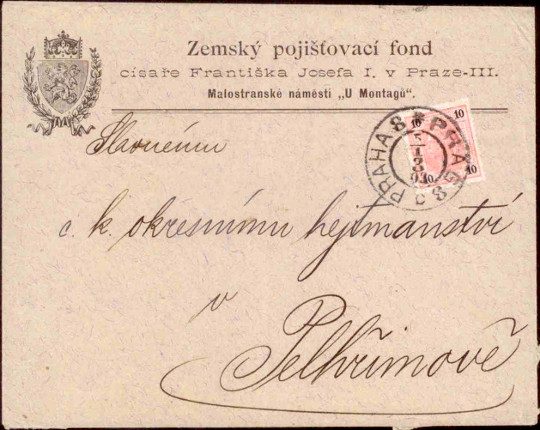 Zemský pojišťovací fond
císaře Františka Josefa I. v Praze-III.
Malostranské náměstí „U Montagů“.
10 10
10 10
PRAHA 8 PRAG 8
5
1
3
Slavnému
c. k. okresnímu hejtmanství
v
Pelhřimově